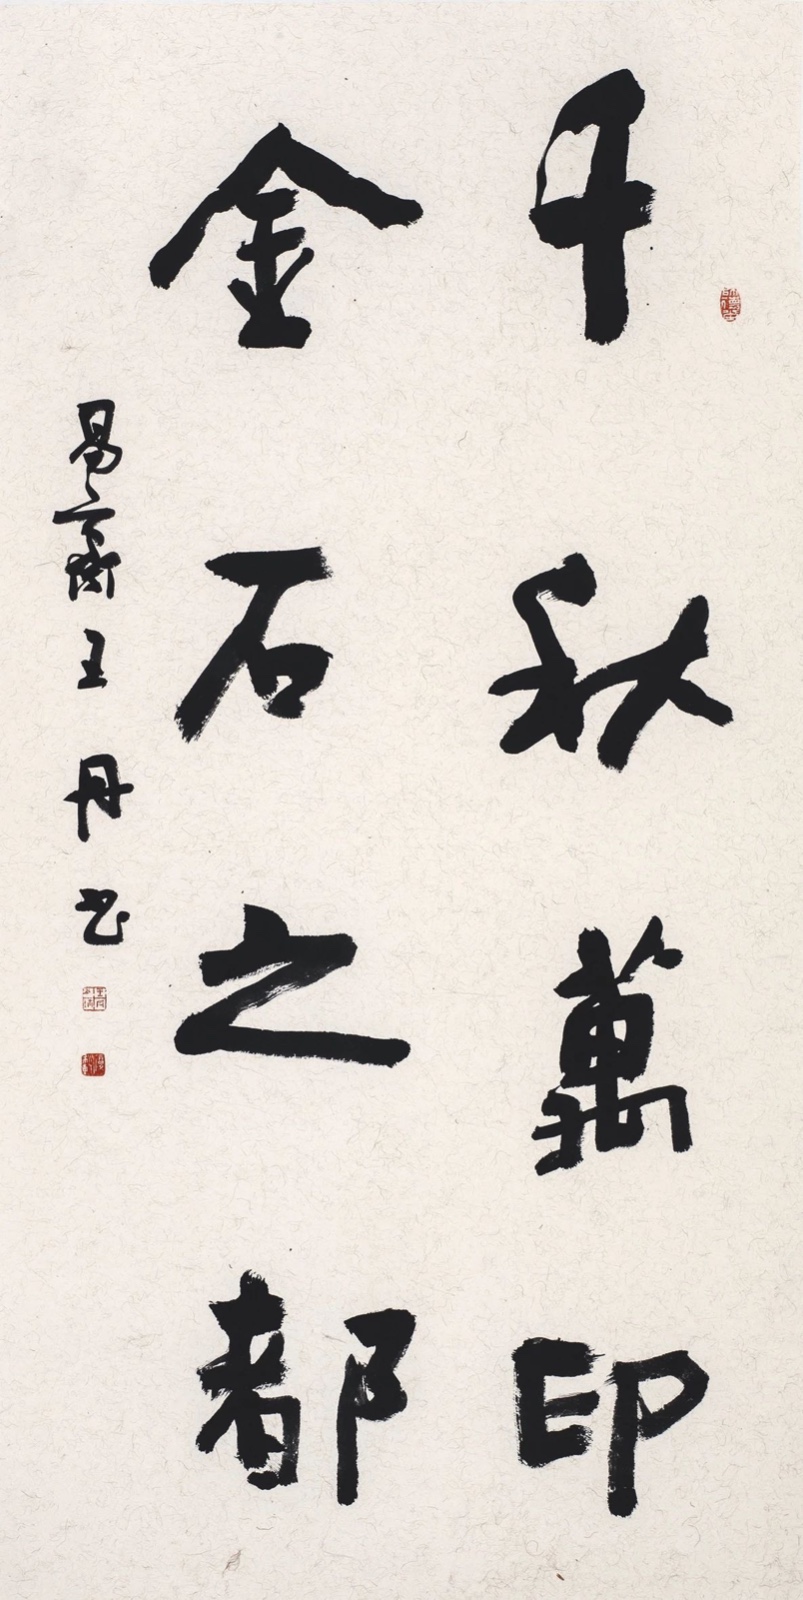 千秋萬印
金石之都
易齋王丹书